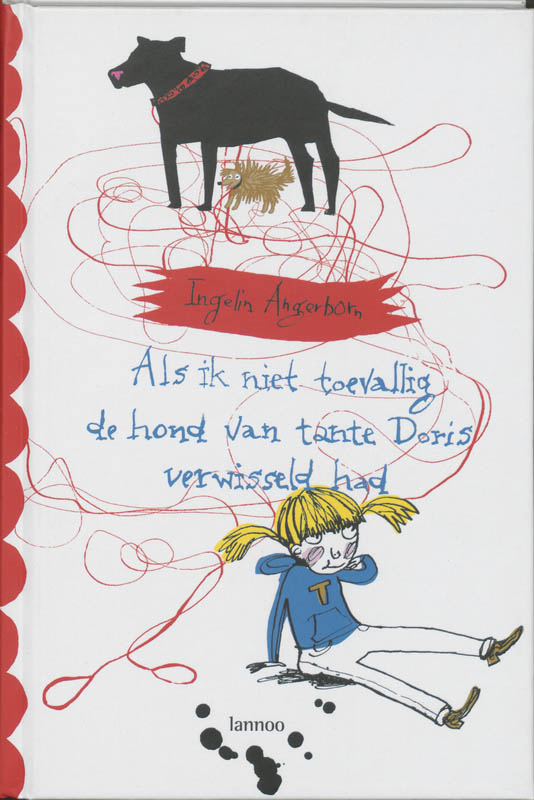 Ingelin Angerborn
Als ik niet toevallig
de hond van tante Doris
verwisseld had
T
lannoo